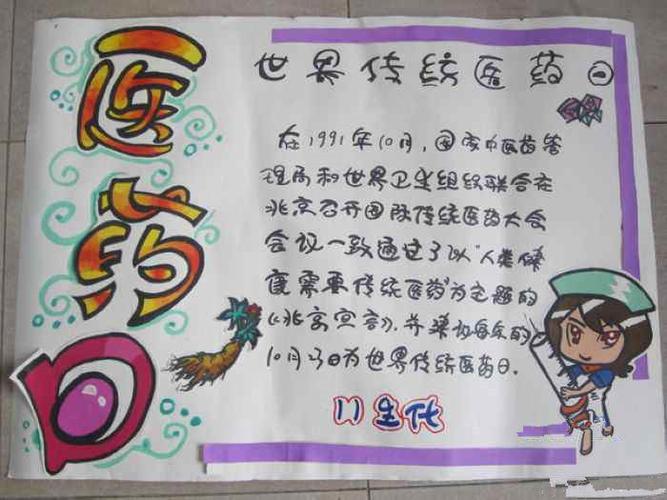 医药日
世界传统医药日
在1991年10月，国家中医药管
理局和世界卫生组织联合在
北京召开国际传统医药大会
会议一致通过了以"人类健
康需要传统医药"为主题的
《北京宣言》，并建议每年的
10月22日为世界传统医药日。
11生化